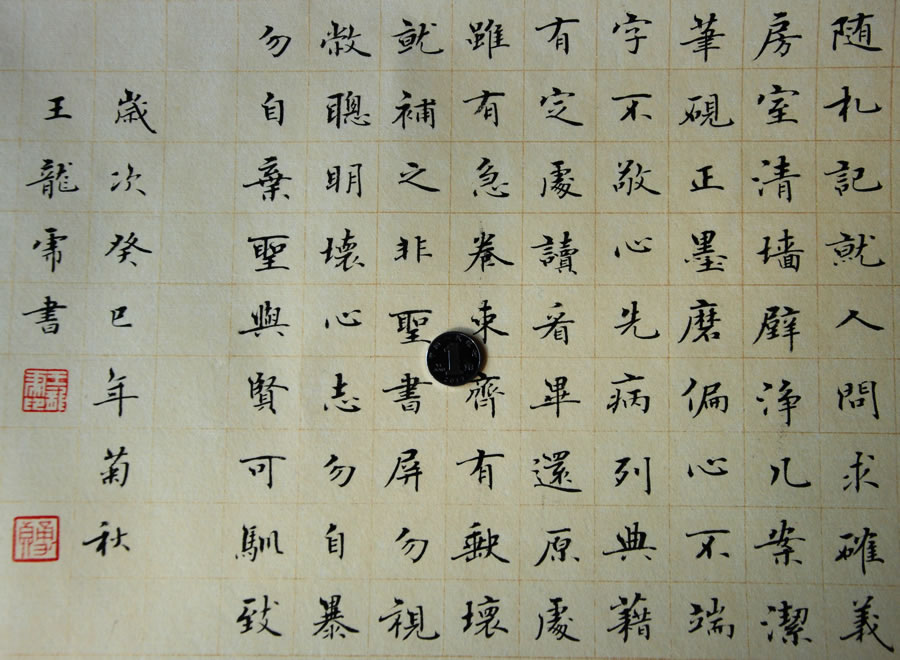 随札記就人問求確義
房室清墙壁净几案潔
筆硯正墨磨偏心不端
字不敬心先病列典藉
有定處讀看畢還原處
雖有急卷束齊有缺壞
就補之非聖書屏勿視
敝聰明壞心志勿自暴
勿自棄聖與賢可馴致
歲次癸巳年菊秋
王龍書
1